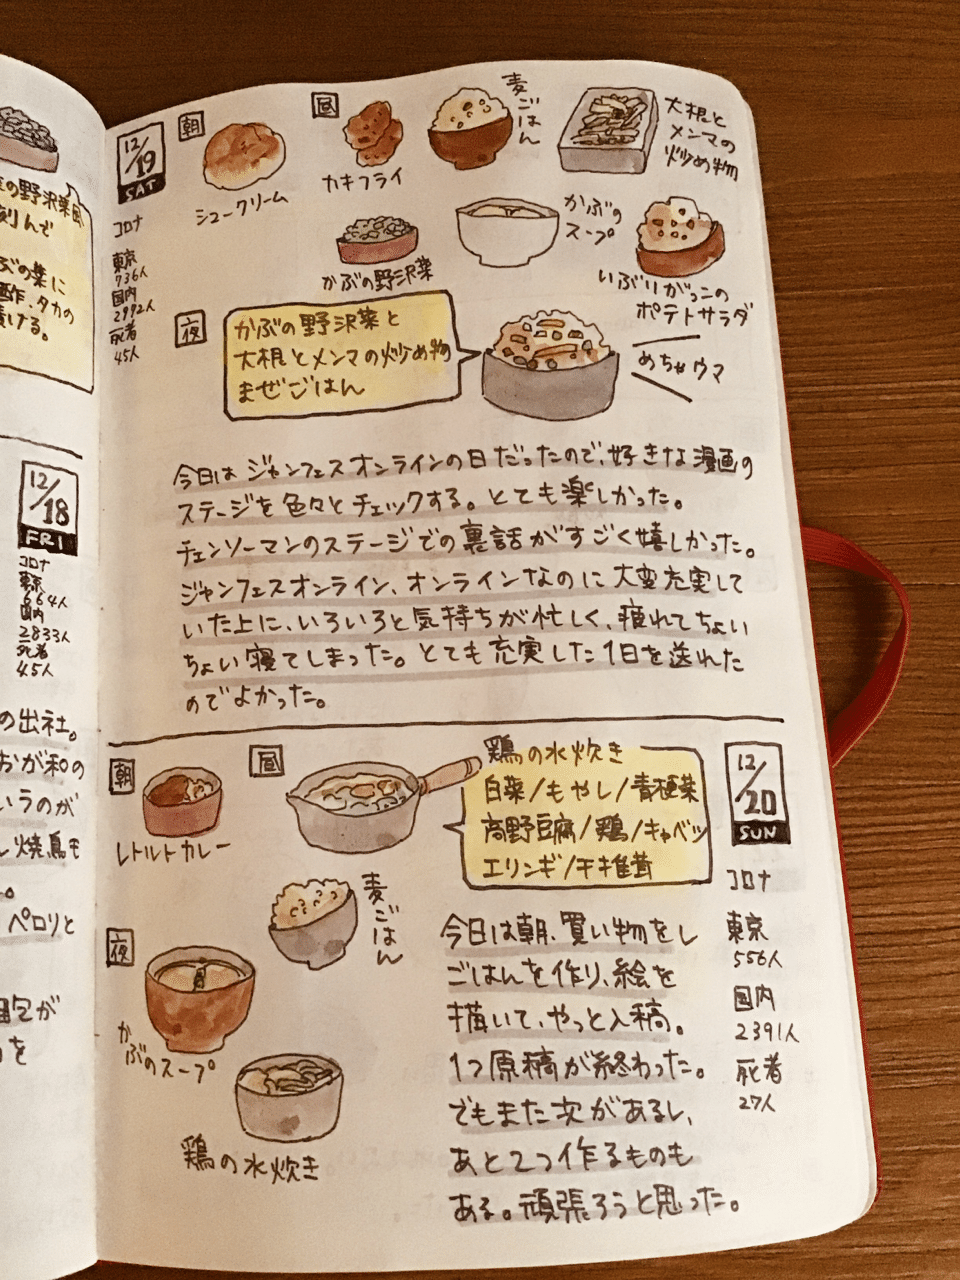 の野沢菜風
刻んで
ぶの葉に
酢、タカの
漬ける。
12/18
FRI
コロナ
東京
664人
国内
2833人
死者
45人
の出社。
おが和の
いうのが
し焼鳥を
。
ペロリと
が
を
12/19
SAT
コロナ
東京
736人
国内
2992人
死者
45人
朝
シュークリーム
昼
カキフライ
麦ごはん
大根と
メンマの
炒め物
かぶの野沢菜
かぶの
スープ
いぶりがっこの
ポテトサラダ
夜
かぶの野沢菜と
大根とメンマの炒め物
まぜごはん
めちゃウマ
今日はジャンフェスオンラインの日だったので、好きな漫画の
ステージを色々とチェックする。とても楽しかった。
チェンソーマンのステージでの裏話がすごく嬉しかった。
ジャンフェスオンライン、オンラインなのに大変充実して
いた上に、いろいろと気持ちが忙しく、疲れてちょい
ちょい寝てしまった。とても充実した1日を送れた
のでよかった。
12/20
SUN
コロナ
東京
556人
国内
2391人
死者
27人
朝
レトルトカレー
昼
鶏の水炊き
白菜/もやし/青梗菜
高野豆腐/鶏/キャベツ
エリンギ/椎茸
麦ごはん
夜
かぶのスープ
鶏の水炊き
今日は朝、買い物をし
ごはんを作り、絵を
描いて、やっと入稿。
1つ原稿が終わった。
でもまた次があるし、
あと2つ作るものも
ある。頑張ろうと思った。